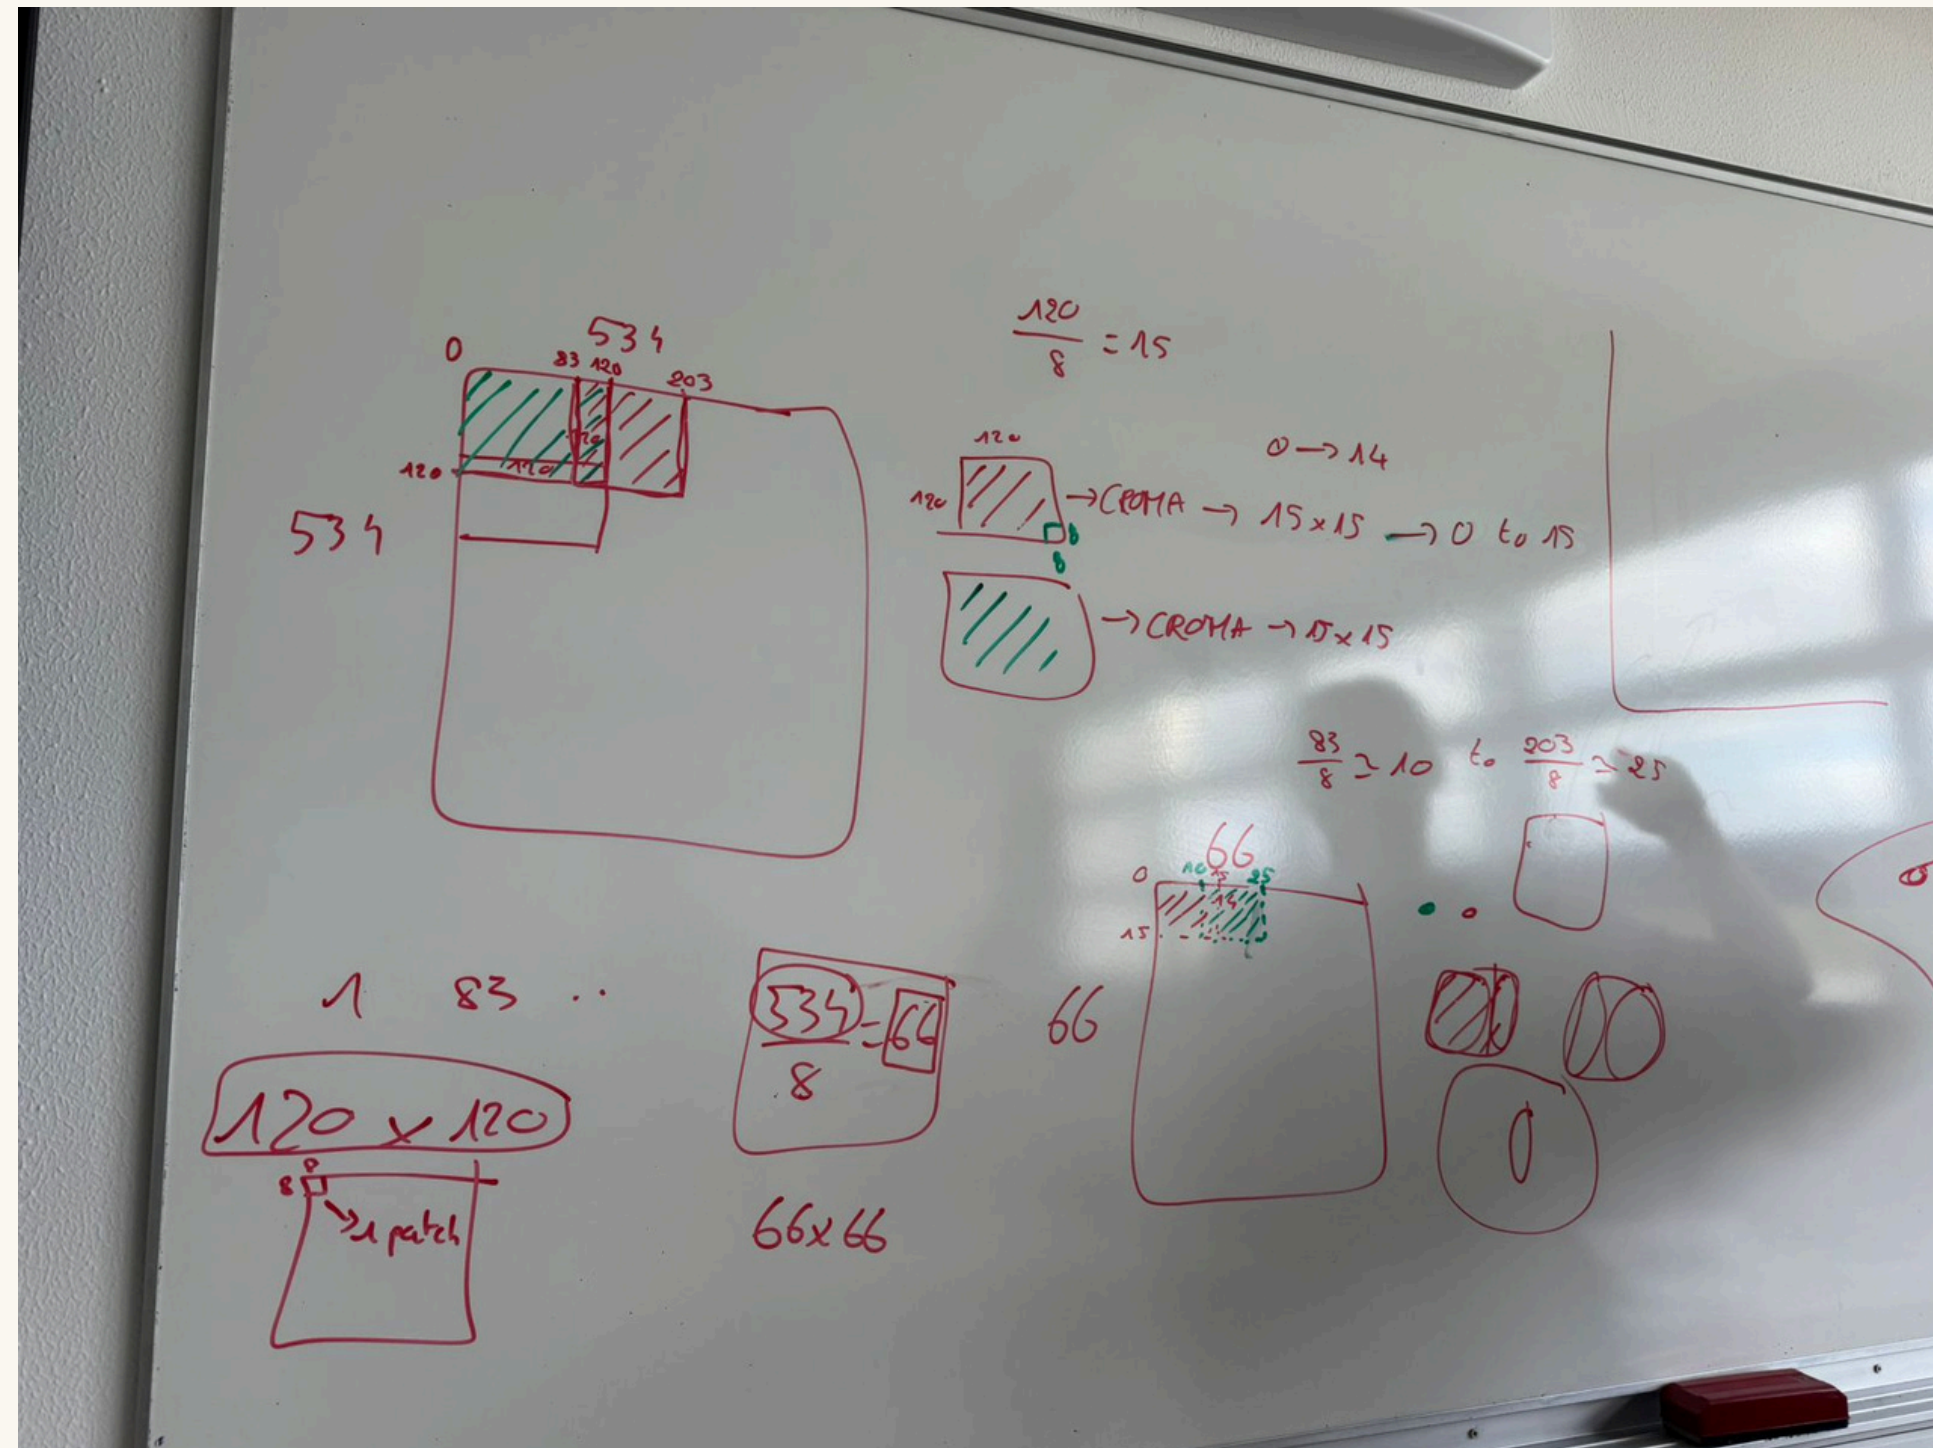 534
0
83 120 203
120
120
120
534
120
/
8
= 15
0 → 14
120
120 → CROMA → 15 x 15 → 0 to 15
8
8
→ CROMA → 15 x 15
83
/
8
≃ 10 to
203
/
8
≃ 25
66
0
10 15 25
14
15
66
1 83 ..
534
/
8
= 66
120 x 120
8
8
1 patch
66 x 66